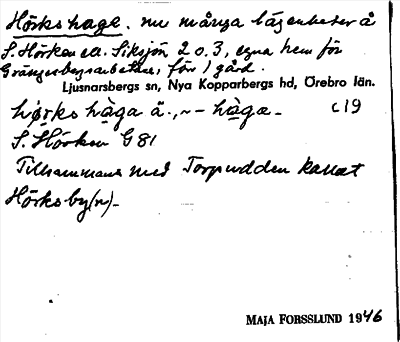 Hörks hage. nu många lägenheter å
S. Hörken ea. Siksjön 2 o. 3, egna hem för
Grängesbergsarbetare, förr 1 gård.
Ljusnarsbergs sn, Nya Kopparbergs hd, Örebro län.
hørks hàga ä., ~- hàga- c19
S. Hörken G81
Tillsammans med Torpudden kallat
Hörksby(n)-
MAJA FORSSLUND 1946